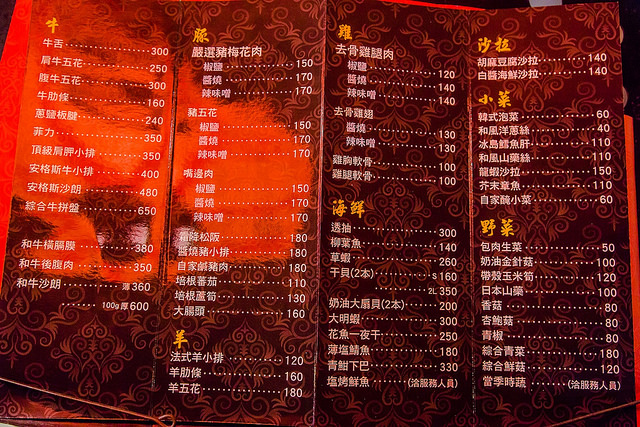 牛
牛舌 300
肩牛五花 250
腹牛五花 300
牛肋條 160
蔥鹽板腱 240
菲力 350
頂級肩胛小排 350
安格斯牛小排 400
安格斯沙朗 480
綜合牛拼盤 650
和牛橫膈膜 380
和牛後腹肉 350
和牛沙朗 薄 360
100g厚 600
豚
嚴選豬梅花肉
椒鹽 150
醬燒 170
辣味噌 170
豬五花
椒鹽 150
醬燒 170
辣味噌 170
嘴邊肉
椒鹽 150
醬燒 170
辣味噌 170
霜降松阪 180
醬燒豬小排 180
自家鹹豬肉 180
培根蕃茄 110
培根蘆筍 130
大腸頭 160
羊
法式羊小排 120
羊肋條 160
羊五花 180
雞
去骨雞腿肉
椒鹽 120
醬燒 140
辣味噌 140
去骨雞翅
醬燒 130
辣味噌 130
雞胸軟骨 100
雞腿軟骨 100
海鮮
透抽 300
柳葉魚 140
草蝦 260
干貝(2本) S 160
2L 350
奶油大扇貝(2本) 200
大明蝦 300
花魚一夜干 250
薄塩鯖魚 180
青魽下巴 330
塩烤鮮魚 (洽服務人員)
沙拉
胡麻豆腐沙拉 140
白醬海鮮沙拉 140
小菜
韓式泡菜 60
和風洋蔥絲 40
冰島鱈魚肝 110
和風山藥絲 110
龍蝦沙拉 150
芥末章魚 110
自家醃小菜 60
野菜
包肉生菜 50
奶油金針菇 100
帶殼玉米筍 120
日本山藥 100
香菇 80
杏鮑菇 80
青椒 80
綜合青菜 180
綜合鮮菇 120
當季時蔬 (洽服務人員)